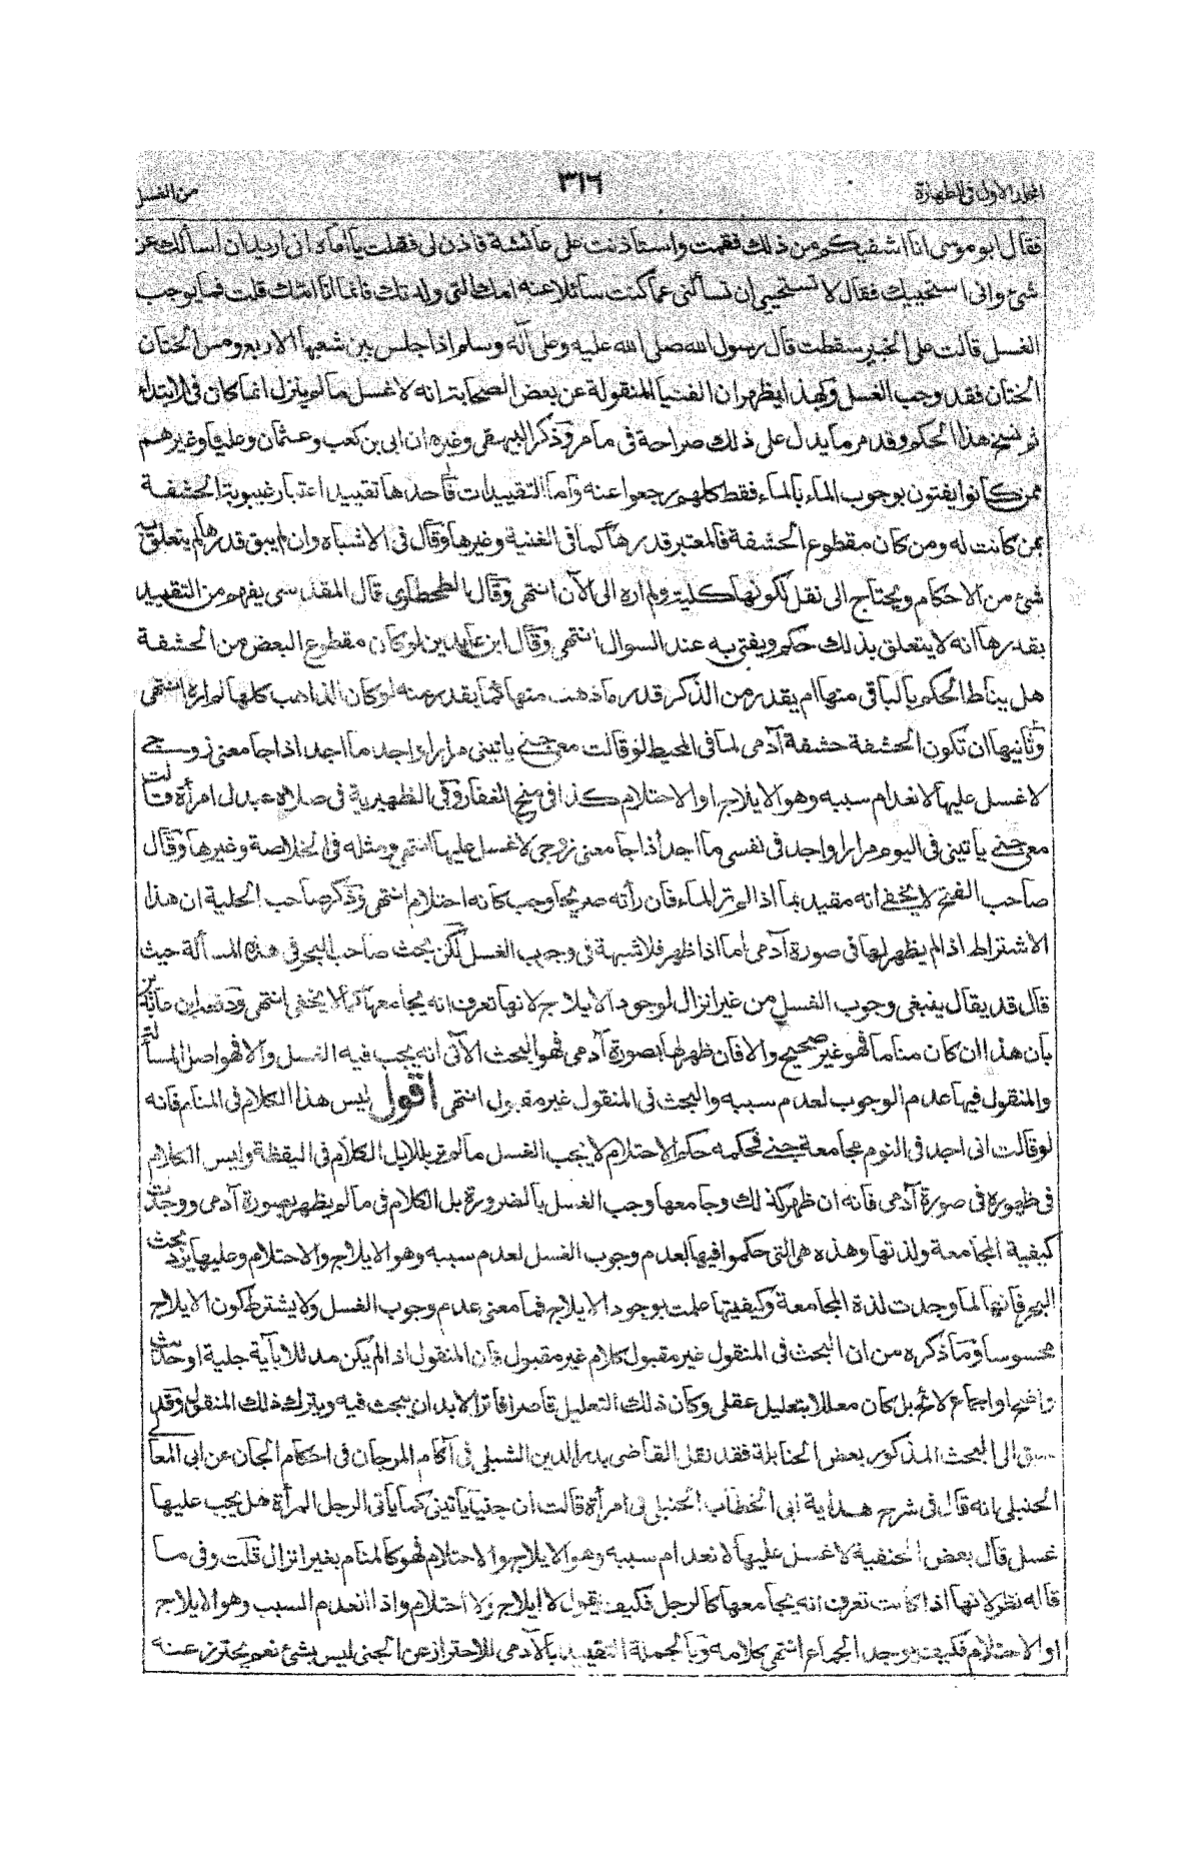 المجلد الاول في الطهارة ٣١٦ من الغسل
فقال ابو موسى انا اشفيكم من ذلك فقمت واستاذنت على عائشة فاذن لى فقلت يا اماه انى اريد ان اسألك عن
شئ وانى استحييك فقال لا تستحيى ان تسألنى عما كنت سائلا عنه امك التى ولدتك فانما انا امك قلت فما يوجب
الغسل قالت على الخبير سقطت قال رسول الله صلى الله عليه وعلى آله وسلم اذا جلس بين شعبها الاربع ومس الختان
الختان فقد وجب الغسل وبهذا يظهر ان الفتيا المنقولة عن بعض الصحابة انه لا غسل ما لم ينزل انما كان فى الابتداء
ثم نسخ هذا الحكم وقد مر ما يدل على ذلك صراحة فى ما مر وذكر البيهقى وغيره ان ابى بن كعب وعثمان وعليا وغيرهم
ممن كانوا يفتون بوجوب الماء بالماء فقط كلهم رجعوا عنه واما التقييدات فاحدها تقييد اعتبار غيبوبة الحشفة
بمن كانت له ومن كان مقطوع الحشفة فالمعتبر قدرها كما فى الغنية وغيرها وقال فى الاشباه وان لم يبق قدرها لم يتعلق به
شئ من الاحكام ويحتاج الى نقل لكونها كلية ولم اره الى الآن انتهى وقال الطحطاوى قال المقدسى يفهم من التقييد
بقدرها انه لا يتعلق بذلك حكم ويفتى به عند السوال انتهى وقال ابن عابدين لو كان مقطوع البعض من الحشفة
هل يناط الحكم بالباقى منها ام يقدر من الذكر قدر ما ذهب منها كما يقدر منه لو كان الذاهب كلها لم اره انتهى
وثانيها ان تكون الحشفة حشفة آدمى لما فى المحيط لو قالت معى جنى ياتينى مرارا واجد ما اجد اذا جامعنى زوجى
لا غسل عليها لانعدام سببه وهو الايلاج او الاحتلام كذا فى منح الغفار وفى الظهيرية فى صلاة عبدل امرأة قالت
معى جنى ياتينى فى اليوم مرارا واجد فى نفسى ما اجد اذا جامعنى زوجى لا غسل عليها انتهى ومثله فى الخلاصة وغيرها وقال
صاحب الفتح لا يخفى انه مقيد بما اذا لم تر الماء فان رأته صريحا وجب كانه احتلام انتهى وذكر صاحب الحلية ان هذا
الاشتراط اذا لم يظهر لها فى صورة آدمى اما اذا ظهر فلا شبهة فى وجوب الغسل لكن بحث صاحب البحر فى هذه المسألة حيث
قال قد يقال ينبغى وجوب الغسل من غير انزال لوجود الايلاج لانها تعرف انه يجامعها كما لا يخفى انتهى ودفعه ابن عابدين
بان هذا ان كان مناما فهو غير صحيح والا فان ظهر لها بصورة آدمى فهو البحث الآتى انه يجب فيه الغسل والا فهو اصل المسألة
والمنقول فيها عدم الوجوب لعدم سببه والبحث فى المنقول غير مقبول انتهى اقول ليس هذا الكلام فى المنام فانه
لو قالت انى اجد فى النوم مجامعة جنى فحكمه حكم الاحتلام لا يجب الغسل ما لم تر بللا بل الكلام فى اليقظة وليس الكلام
فى ظهوره فى صورة آدمى فانه ان ظهر كذلك وجامعها وجب الغسل بالضرورة بل الكلام فى ما لم يظهر بصورة آدمى ووجدت
كيفية المجامعة ولذتها وهذه هى التى حكموا فيها بعدم وجوب الغسل لعدم سببه وهو الايلاج والاحتلام وعليها يرد بحث
البحر فانها لما وجدت لذة المجامعة وكيفيتها علمت بوجود الايلاج فما معنى عدم وجوب الغسل ولا يشترط كون الايلاج
محسوسا وما ذكره من ان البحث فى المنقول غير مقبول كلام غير مقبول فان المنقول اذا لم يكن مدللا بآية جلية او حديث
واضح او اجماع لائح بل كان معللا بتعليل عقلى وكان ذلك التعليل قاصرا فاترا لا بد ان يبحث فيه ويترك ذلك المنقول وقد
سبق الى البحث المذكور بعض الحنابلة فقد نقل القاضى بدر الدين الشبلى فى آكام المرجان فى احكام الجان عن ابى المعالى
الحنبلى انه قال فى شرح هداية ابى الخطاب الحنبلى فى امرأة قالت ان جنيا ياتينى كما ياتى الرجل المرأة هل يجب عليها
غسل قال بعض الحنفية لا غسل عليها لانعدام سببه وهو الايلاج والاحتلام فهو كالمنام بغير انزال قلت وفى ما
قاله نظر لانها اذا كانت تعرف انه يجامعها كالرجل فكيف يقول لا ايلاج ولا احتلام واذا انعدم السبب وهو الايلاج
او الاحتلام فكيف يوجد الجماع انتهى كلامه وبالجملة التقييد بالآدمى للاحتراز عن الجنى ليس بشئ نعم يحترز عنه